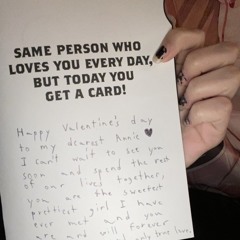 SAME PERSON WHO
LOVES YOU EVERY DAY,
BUT TODAY YOU
GET A CARD!
Happy Valentine's day
to my dearest Annie ♥
I can't wait to see you
soon and spend the rest
of our lives together,
you are the sweetest
prettiest girl I have
ever met and you
are and will forever
only true love.